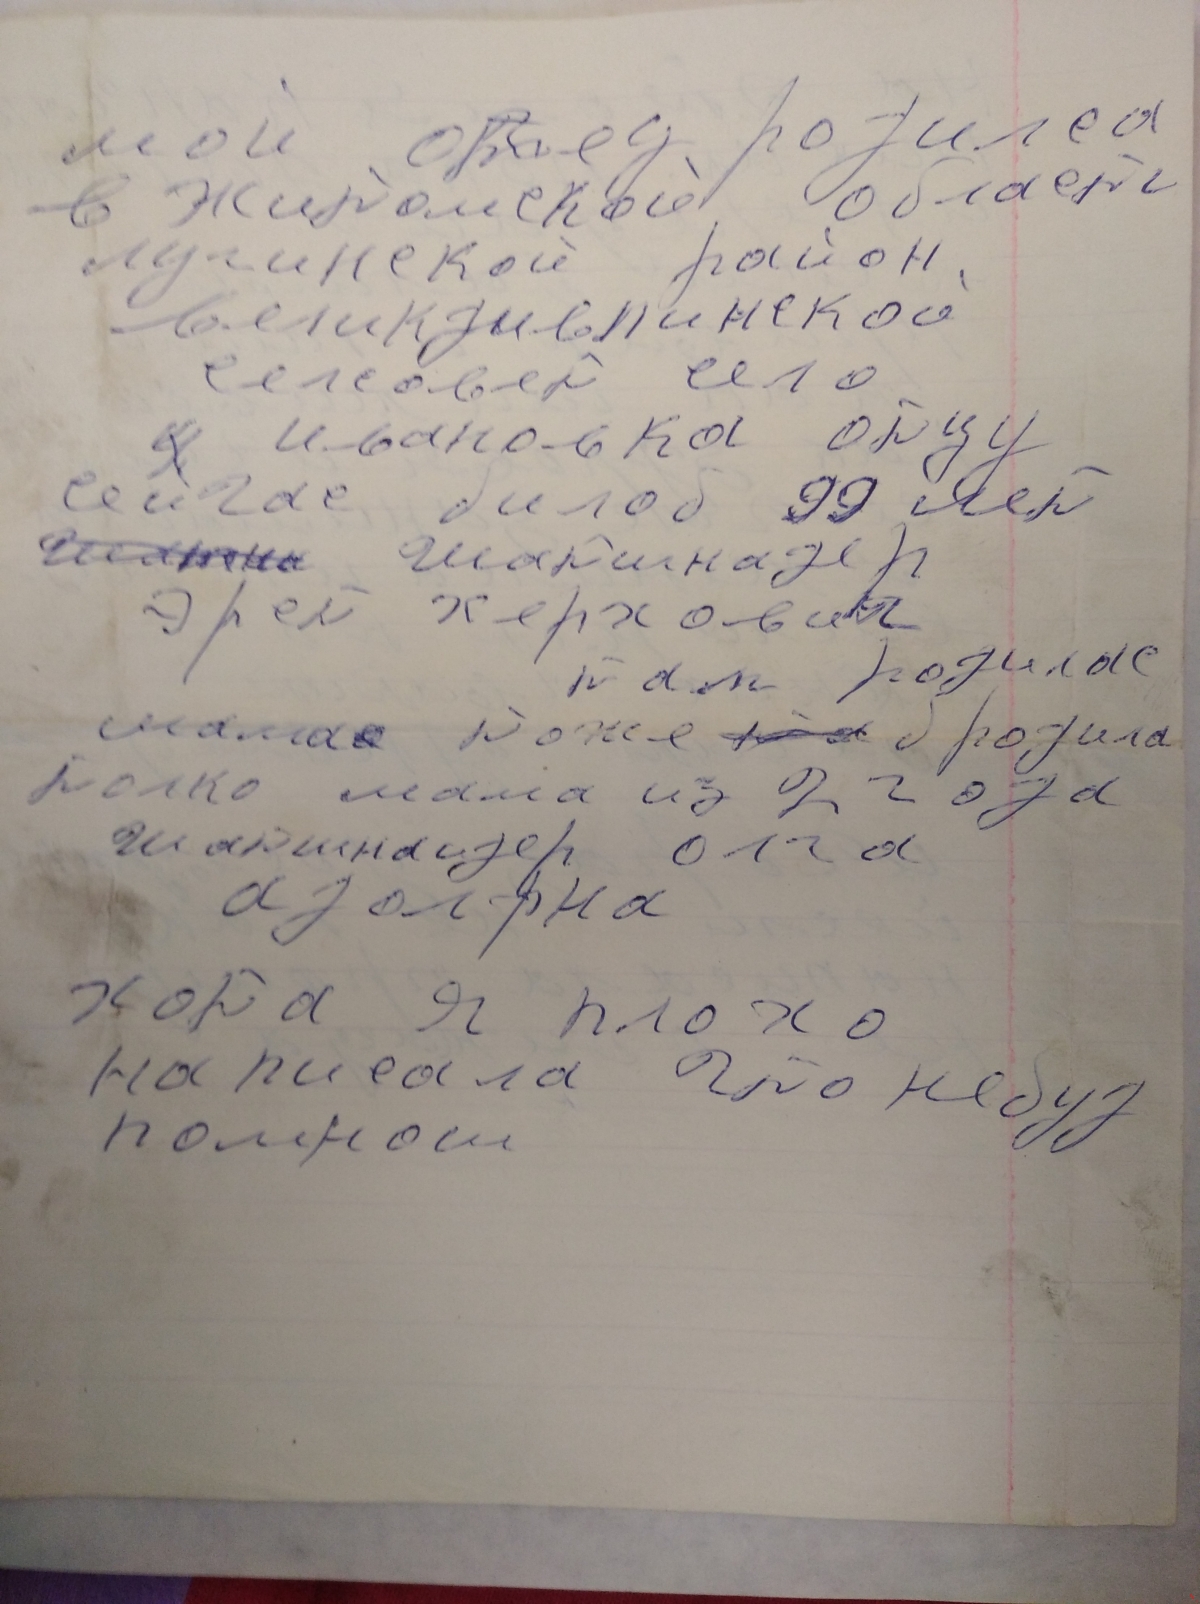 мой отец родилса
в Житомской области
лугинской район,
великдивлинской
селсовет село
ивановка отцу
сейчас билоб 99 лет
Шатшнадер
Эрет Херхович
там родилас
мама тоже родила
толко мама из 22 года
Шатшнаидер олга
адолфна
хотя я плохо
написала что небуд
помнош